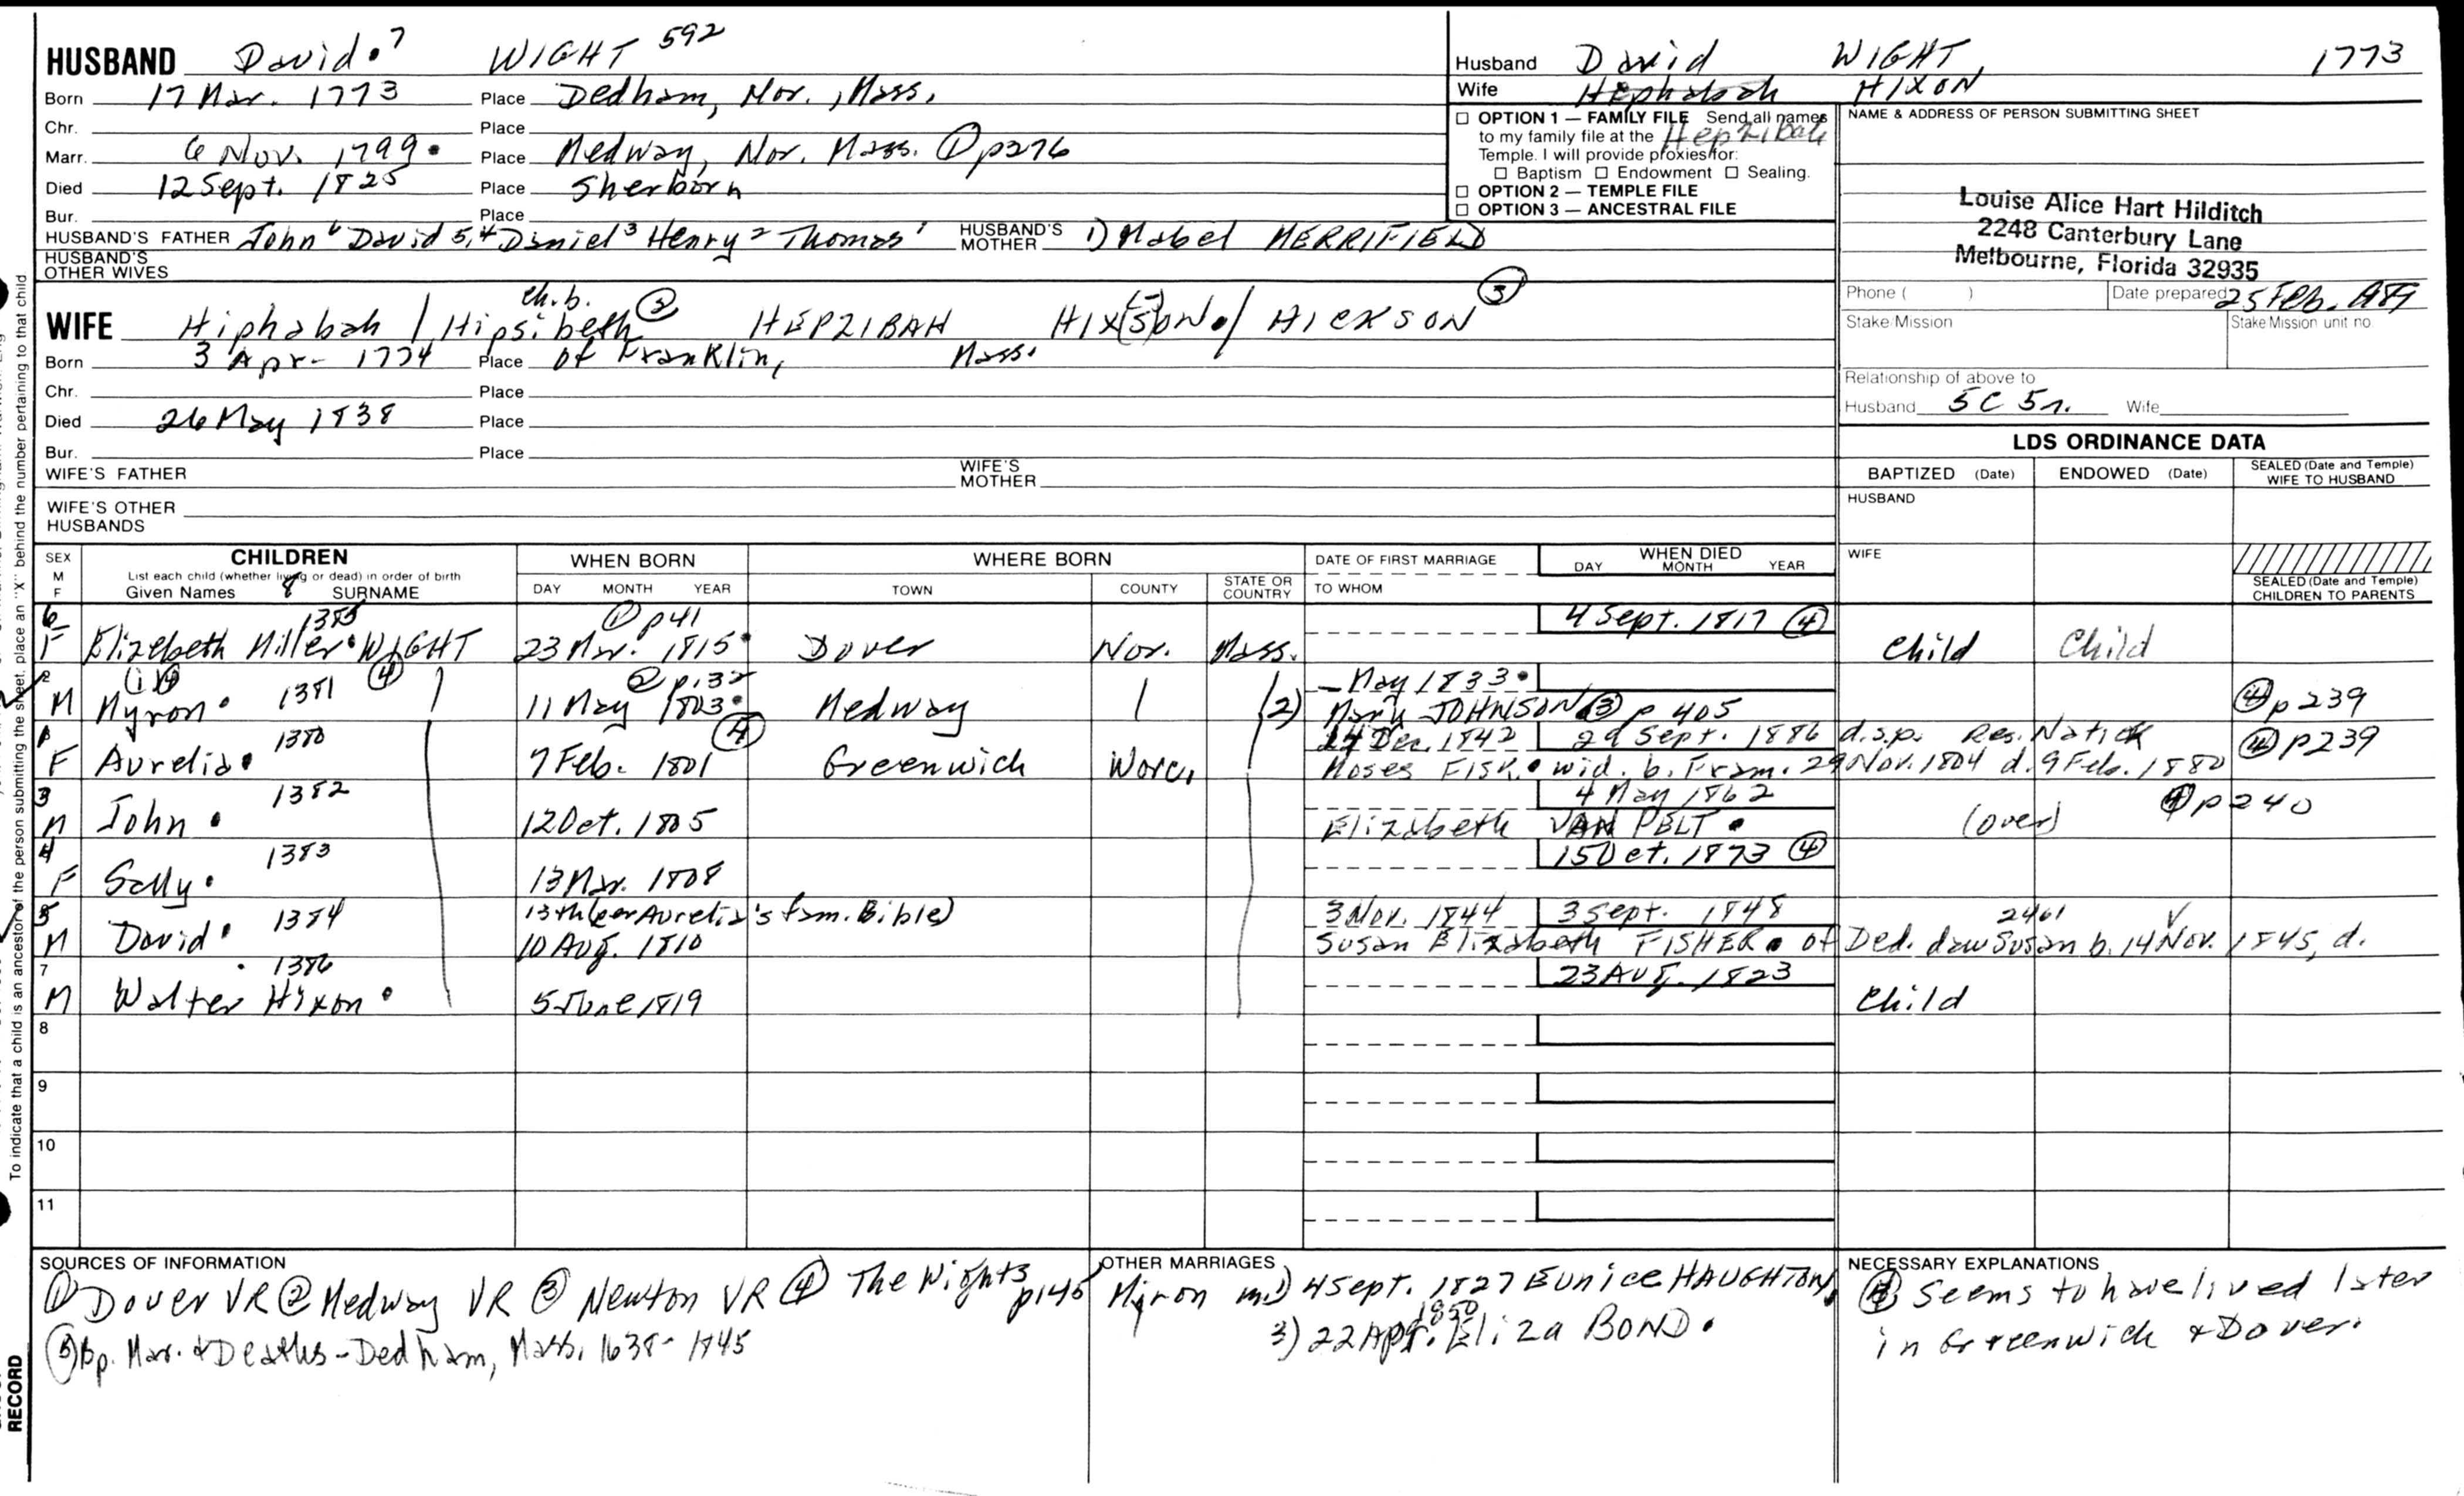 HUSBAND David.7 WIGHT 592
Born 17 Mar. 1773 Place Dedham, Nor., Mass.
Chr. Place
Marr. 6 Nov. 1799. Place Medway, Nor. Mass. ① p276
Died 12 Sept. 1825 Place Sherborn
Bur. Place
HUSBAND'S FATHER John 6 David 5,4 Daniel 3 Henry 2 Thomas 1 HUSBAND'S MOTHER 1) Mabel MERRIFIELD
HUSBAND'S OTHER WIVES
Husband David WIGHT, 1773
Wife Hephzibah HIXON
☐ OPTION 1 — FAMILY FILE Send all names
to my family file at the Hepzibah
Temple. I will provide proxies for:
☐ Baptism ☐ Endowment ☐ Sealing.
☐ OPTION 2 — TEMPLE FILE
☐ OPTION 3 — ANCESTRAL FILE
NAME & ADDRESS OF PERSON SUBMITTING SHEET
Louise Alice Hart Hilditch
2248 Canterbury Lane
Melbourne, Florida 32935
Phone ( ) Date prepared 25 Feb.
Stake/Mission Stake/Mission unit no.
Relationship of above to
Husband 5C 5r. Wife
ch.b.
WIFE Hiphabah / Hipsibeth ② HEPZIBAH HIX(S)ON. / HICKSON ③
Born 3 Apr- 1774 Place of Franklin, Mass.
Chr. Place
Died 26 May 1838 Place
Bur. Place
WIFE'S FATHER WIFE'S MOTHER
WIFE'S OTHER HUSBANDS
LDS ORDINANCE DATA
BAPTIZED (Date) ENDOWED (Date) SEALED (Date and Temple) WIFE TO HUSBAND
HUSBAND
WIFE
SEALED (Date and Temple) CHILDREN TO PARENTS
SEX M F
CHILDREN
List each child (whether living or dead) in order of birth
Given Names 8 SURNAME
WHEN BORN DAY MONTH YEAR
WHERE BORN TOWN COUNTY STATE OR COUNTRY
DATE OF FIRST MARRIAGE TO WHOM
WHEN DIED DAY MONTH YEAR
6 1385 ① p41 4 Sept. 1817 ④
F Elizabeth Miller. WIGHT 23 Mar. 1815. Dover Nor. Mass. Child Child
2 1381 ④ ② p.132 - May 1833.
M Myron. 11 May 1803. Medway (2) Mary JOHNSON ③ p 405 ④ p239
1 1380 ④ 14 Dec. 1842 29 Sept. 1886 d.s.p. Res. Natick
F Aurelia. 7 Feb. 1801 Greenwich Worc. Moses FISK. wid. b. Fram. 29 Nov. 1804 d. 9 Feb. 1880 ④ p239
3 1382 4 May 1862 ④ p240
M John. 12 Oct. 1805 Elizabeth VAN PELT. (over)
4 1383 15 Oct. 1873 ④
F Sally. 13 Mar. 1808
5 1384 13th (per Aurelia's fam. Bible) 3 Nov. 1844 3 Sept. 1848 2461
M David. 10 Aug. 1810 Susan Elizabeth FISHER. of Ded. dau Susan b. 14 Nov. 1845, d.
7 . 1386 23 Aug. 1823
M Walter Hixon. 5 June 1819 Child
8
9
10
11
SOURCES OF INFORMATION
① Dover VR ② Medway VR ③ Newton VR ④ The Wights p145
⑤ Bp. Mar. & Deaths - Dedham, Mass. 1638-1845
OTHER MARRIAGES
Myron m1) 4 Sept. 1827 Eunice HAUGHTON.
3) 22 Apr. 1850 Eliza BOND.
NECESSARY EXPLANATIONS
④ Seems to have lived later
in Greenwich & Dover.
To indicate that a child is an ancestor of the person submitting the sheet, place an "X" behind the number pertaining to that child
RECORD